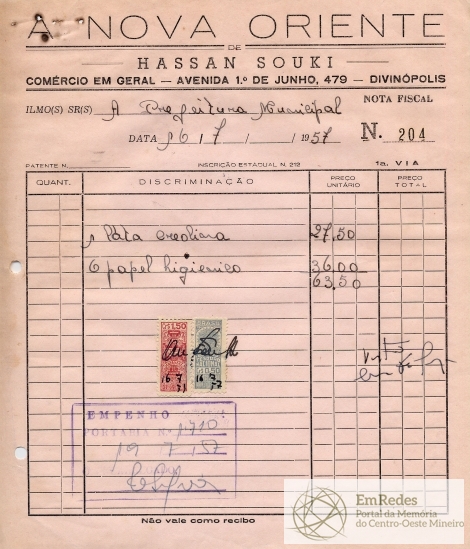 A NOVA ORIENTE
DE
HASSAN SOUKI
COMÉRCIO EM GERAL — AVENIDA 1.º DE JUNHO, 479 — DIVINÓPOLIS
ILMO(S) SR(S) A Prefeitura Municipal
NOTA FISCAL
DATA 16 / 7 / / 1957
N. 204
PATENTE N.
INSCRIÇÃO ESTADUAL N. 212
1a. VIA
QUANT.
DISCRIMINAÇÃO
PREÇO UNITÁRIO
PREÇO TOTAL
1 lata creolina 27,50
6 papel higienico 36,00
63,50
1,50
0,50
16-7
EMPENHO
PORTARIA Nº 1710
19 7 57
Não vale como recibo
EmRedes
Portal da Memória
do Centro-Oeste Mineiro